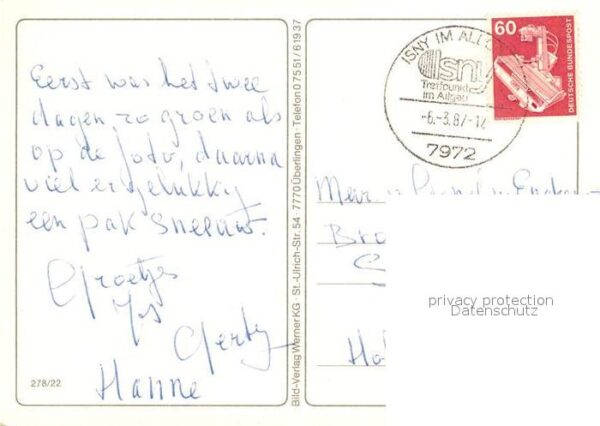 Eerst was het twee
dagen zo groen als
op de foto, daarna
viel er gelukkig
een pak sneeuw.
Groetjes
Gerty
Hanne
278/22
Bild-Verlag Werner KG · St.-Ulrich-Str. 54 · 7770 Überlingen · Telefon 07551/61937
ISNY IM ALLG
Isny
Treffpunkt
im Allgäu
-6.-3.87-12
7972
60
DEUTSCHE BUNDESPOST
privacy protection
Datenschutz